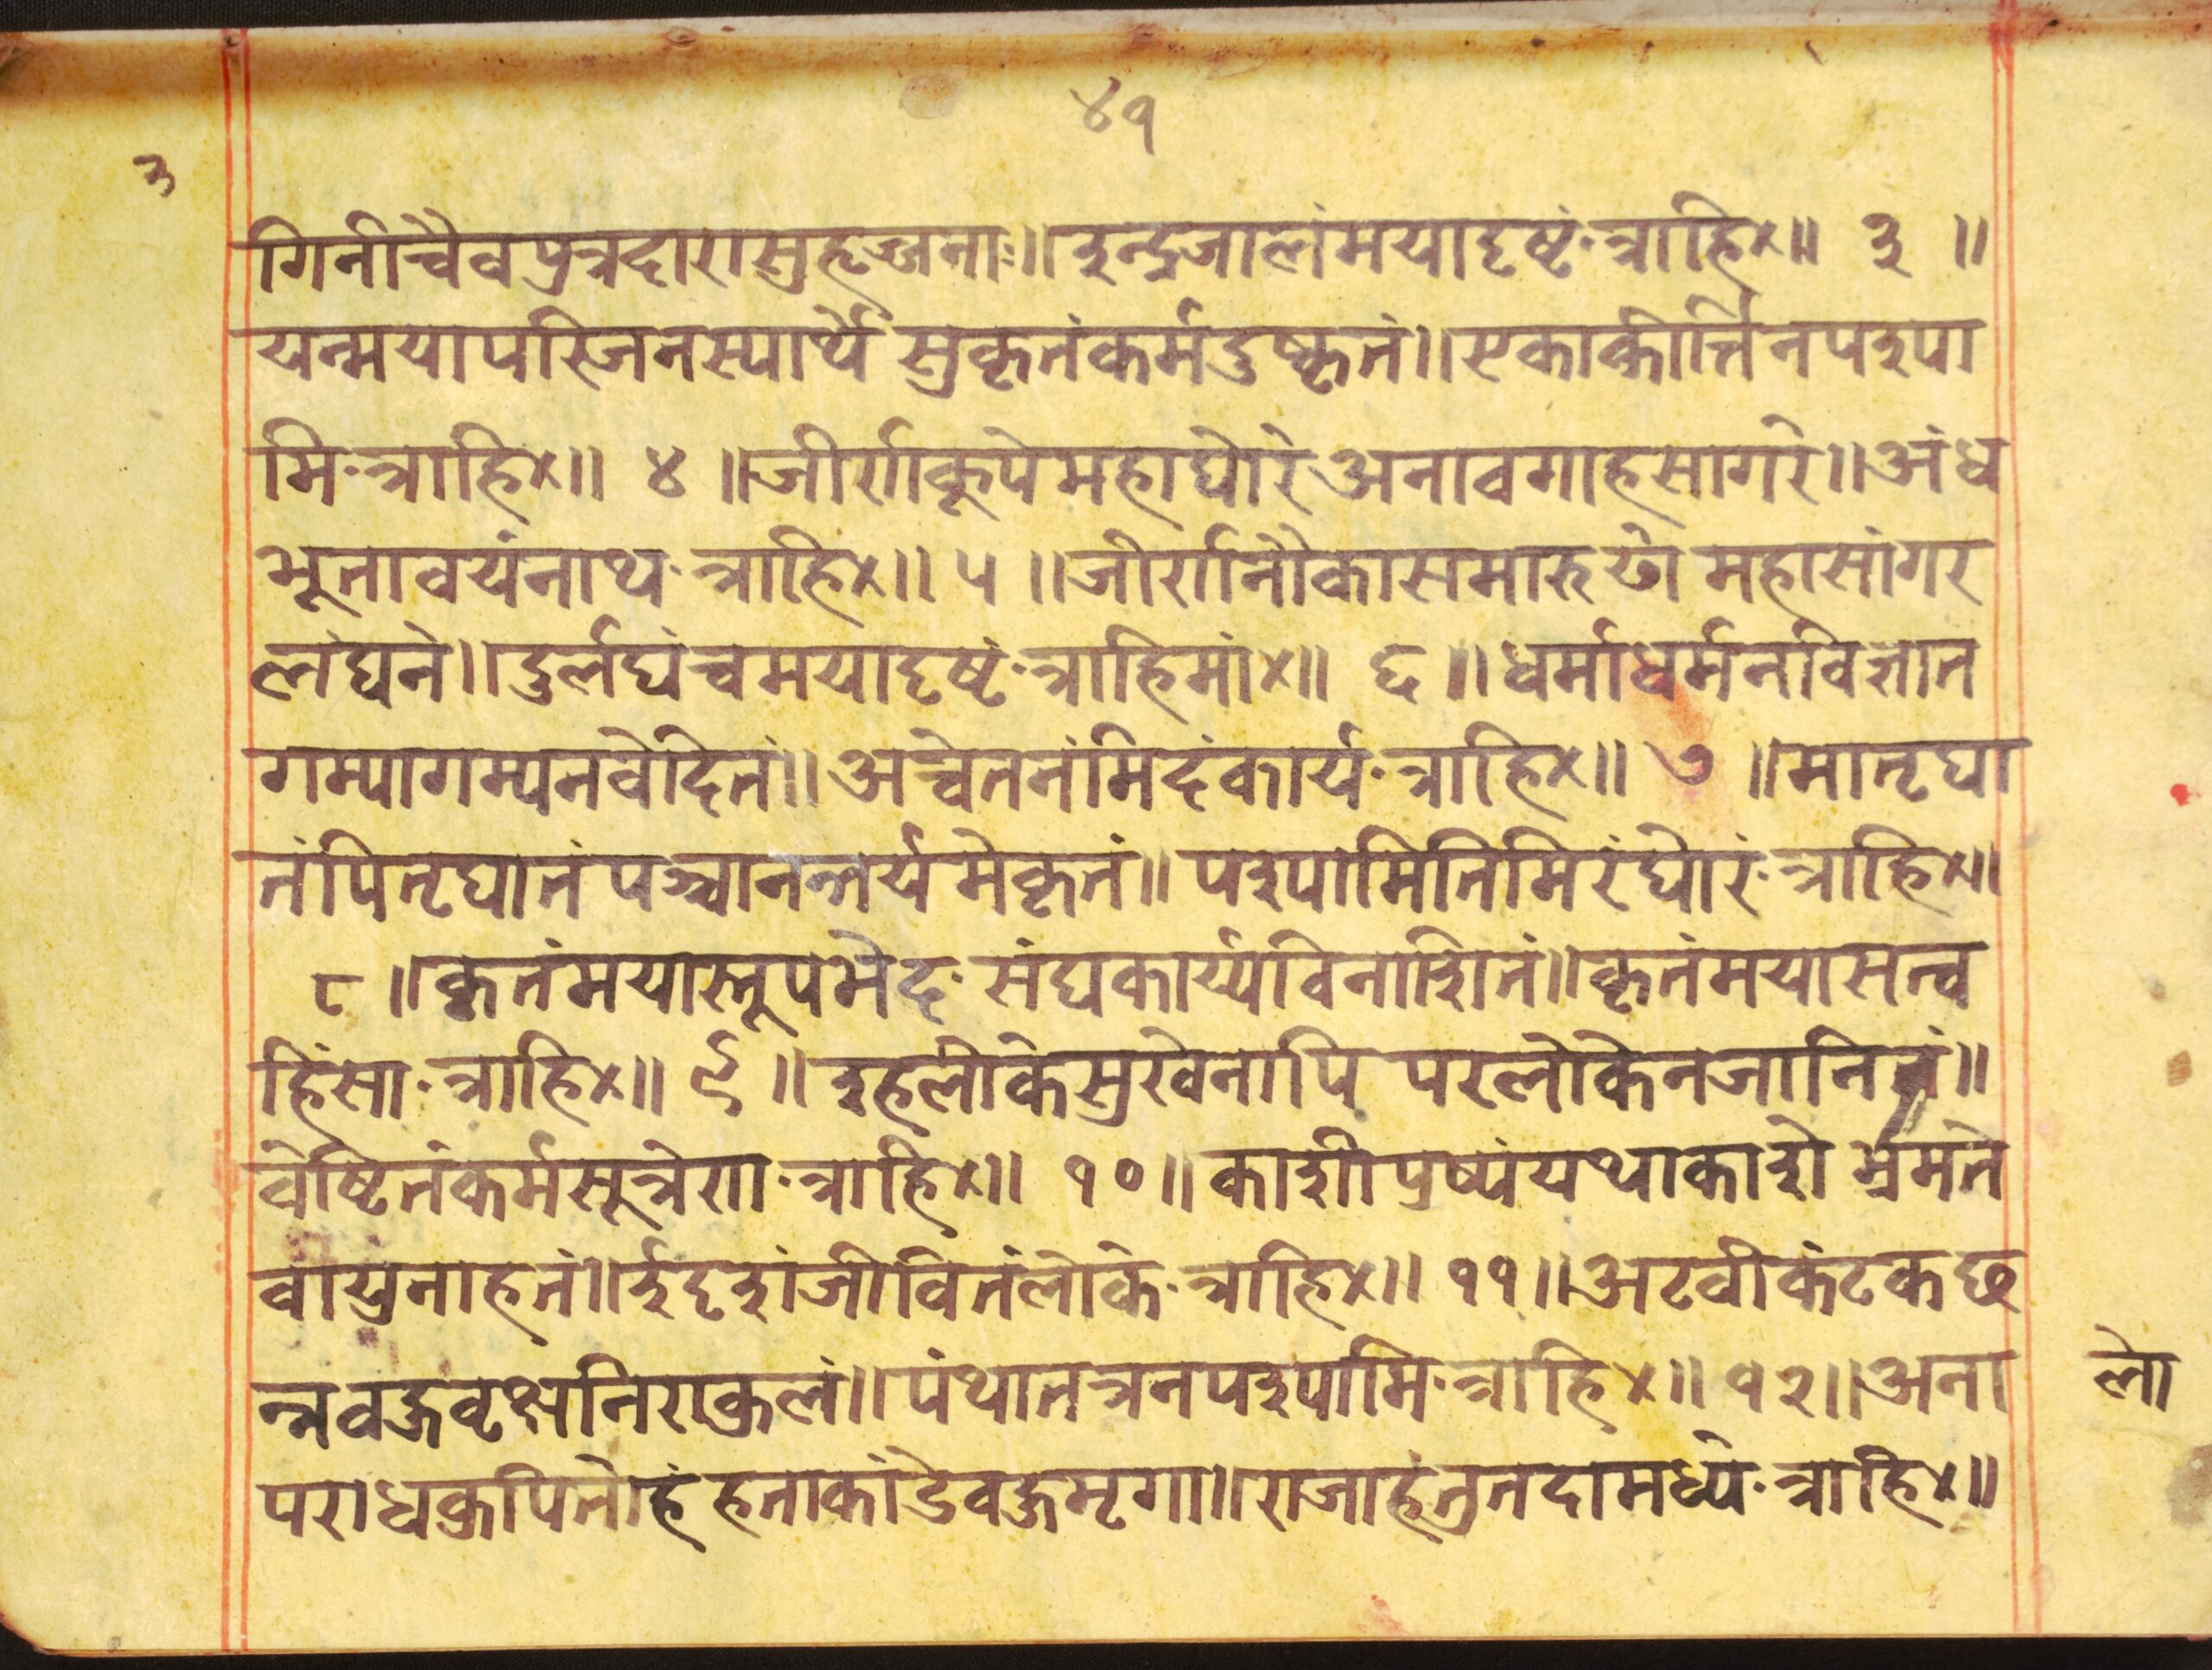 ४१
३
गिनीचैवपुत्रदारासुहृज्जनाः॥इन्द्रजालंमयादृष्टं·त्राहि४॥ ३ ॥
यन्मयापरिजनस्यार्थे सुकृतंकर्मदुष्कृतं॥एकाकीर्त्तिनपश्या
मि·त्राहि४॥ ४ ॥जीर्णकूपेमहाघोरे अनावगाहसागरे॥अंध
भूतावयंनाथ·त्राहि४॥ ५ ॥जीर्णनौकासमारुढो महासांगर
लंघने॥दुर्लघंचमयादृष्टं·त्राहिमां४॥ ६ ॥धर्माधर्मनविज्ञान
गम्यागम्यनवेदितं॥अचेतनंमिदंकार्य·त्राहि४॥ ७ ॥मातृघा
तंपितृघातं पञ्चानन्तर्यमेकृतं॥पश्यामितिमिरंघोरं·त्राहि४॥
८ ॥कृतंमयास्तूपभेद·संघकार्य्यविनाशितं॥कृतंमयासत्व
हिंसा·त्राहि४॥ ९ ॥इहलोकेसुखेनापि परलोकेनजानितं॥
वेष्टितंकर्मसूत्रेण·त्राहि४॥ १०॥काशीपुष्पंयथाकाशे भ्रमते
वायुनाहतं॥ईदृशंजीवितंलोके·त्राहि४॥ ११॥अटवीकंटकछ
न्नवज्रवृक्षनिराकुलं॥पंथातत्रनपश्यामि·त्राहि४॥ १२॥अना
लो
पराधकुपितोहं हताकांडेवज्रमृगा॥राजाहंतुनदामध्ये·त्राहि४॥